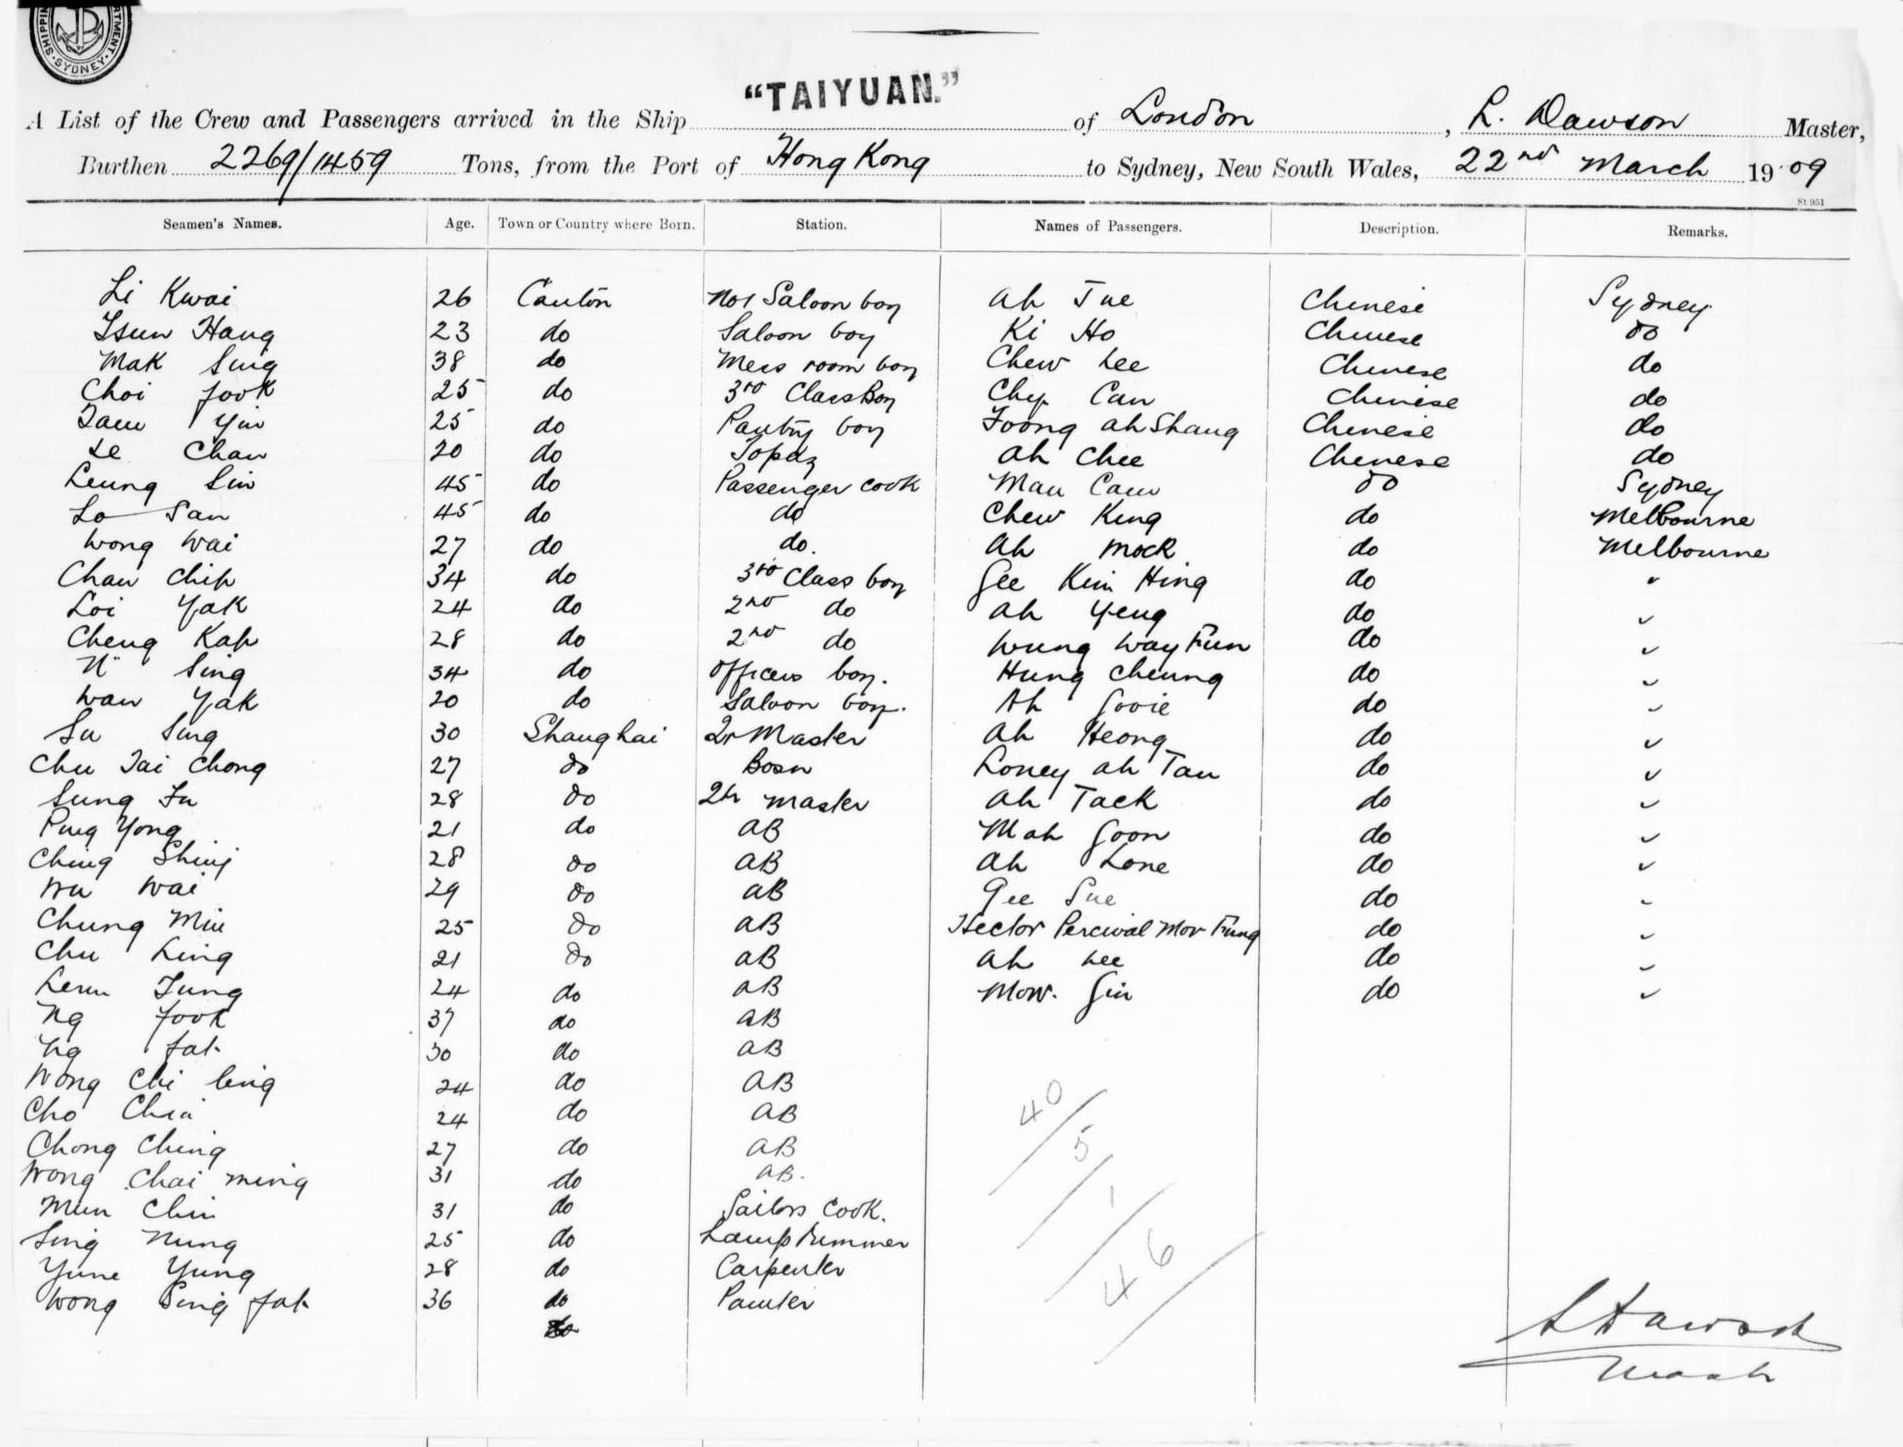 SHIPPING DEPARTMENT. SYDNEY
"TAIYUAN."
A List of the Crew and Passengers arrived in the Ship of London, L. Dawson Master,
Burthen 2269/1459 Tons, from the Port of Hong Kong to Sydney, New South Wales, 22nd March 1909
St 951
Seamen's Names. Age. Town or Country where Born. Station. Names of Passengers. Description. Remarks.
Li Kwai 26 Canton No1 Saloon boy Ah Tue Chinese Sydney
Tsun Hang 23 do Saloon boy Ki Ho Chinese do
Mak Sing 38 do Mess room boy Chew Lee Chinese do
Choi Fook 25 do 3rd Class Boy Chy Can Chinese do
Tam Yiu 25 do Pantry boy Foong ah Shang Chinese do
Le Chan 20 do Topaz Ah Chee Chinese do
Leung Sin 45 do Passenger cook Man Cam do Sydney
Lo San 45 do do Chew King do Melbourne
Wong Wai 27 do do. Ah Mock do Melbourne
Chan Chip 34 do 3rd Class boy Gee Kim Hing do "
Loi Yak 24 do 2nd do Ah Yeng do "
Cheng Kap 28 do 2nd do Wung Way Fun do "
N Sing 34 do Officers boy. Hung Cheung do "
Wan Yak 20 do Saloon boy. Ah Gooie do "
Su Sing 30 Shanghai Qr Master Ah Heong do "
Chu Tai Chong 27 do Bosn Loney ah Tan do "
Sung Fu 28 do Qr Master Ah Tack do "
Ping Yong 21 do AB Mah Goon do "
Ching Shing 28 do AB Ah Lone do "
Wu Wai 29 do AB Gee Sue do "
Chung Min 25 do AB Hector Percival Mov Fung do "
Chu Ling 21 do AB Ah Lee do "
Tung 24 do AB Mow. Gin do "
Ng Fook 37 do AB
Ng Fat 30 do AB
Wong Chi 24 do AB
Cho 24 do AB
Chong Ching 27 do AB
Wong Chai Ming 31 do AB.
Mun Chin 31 do Sailors Cook.
Sing Nung 25 do Lamp trimmer
Yune Yung 28 do Carpenter
Wong Sing Fat 36 do Painter
40/
5/
1/
46/
L Dawson
Mastr